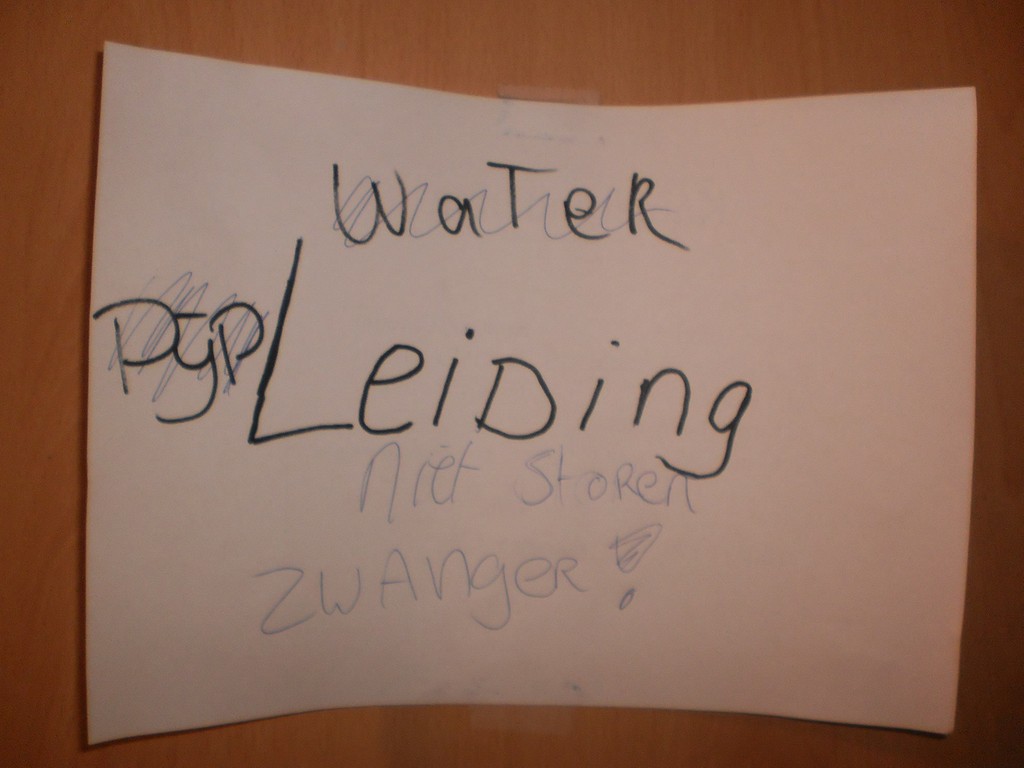 WaTeR
pijpLeiDing
niet StoRen
ZWANgER!